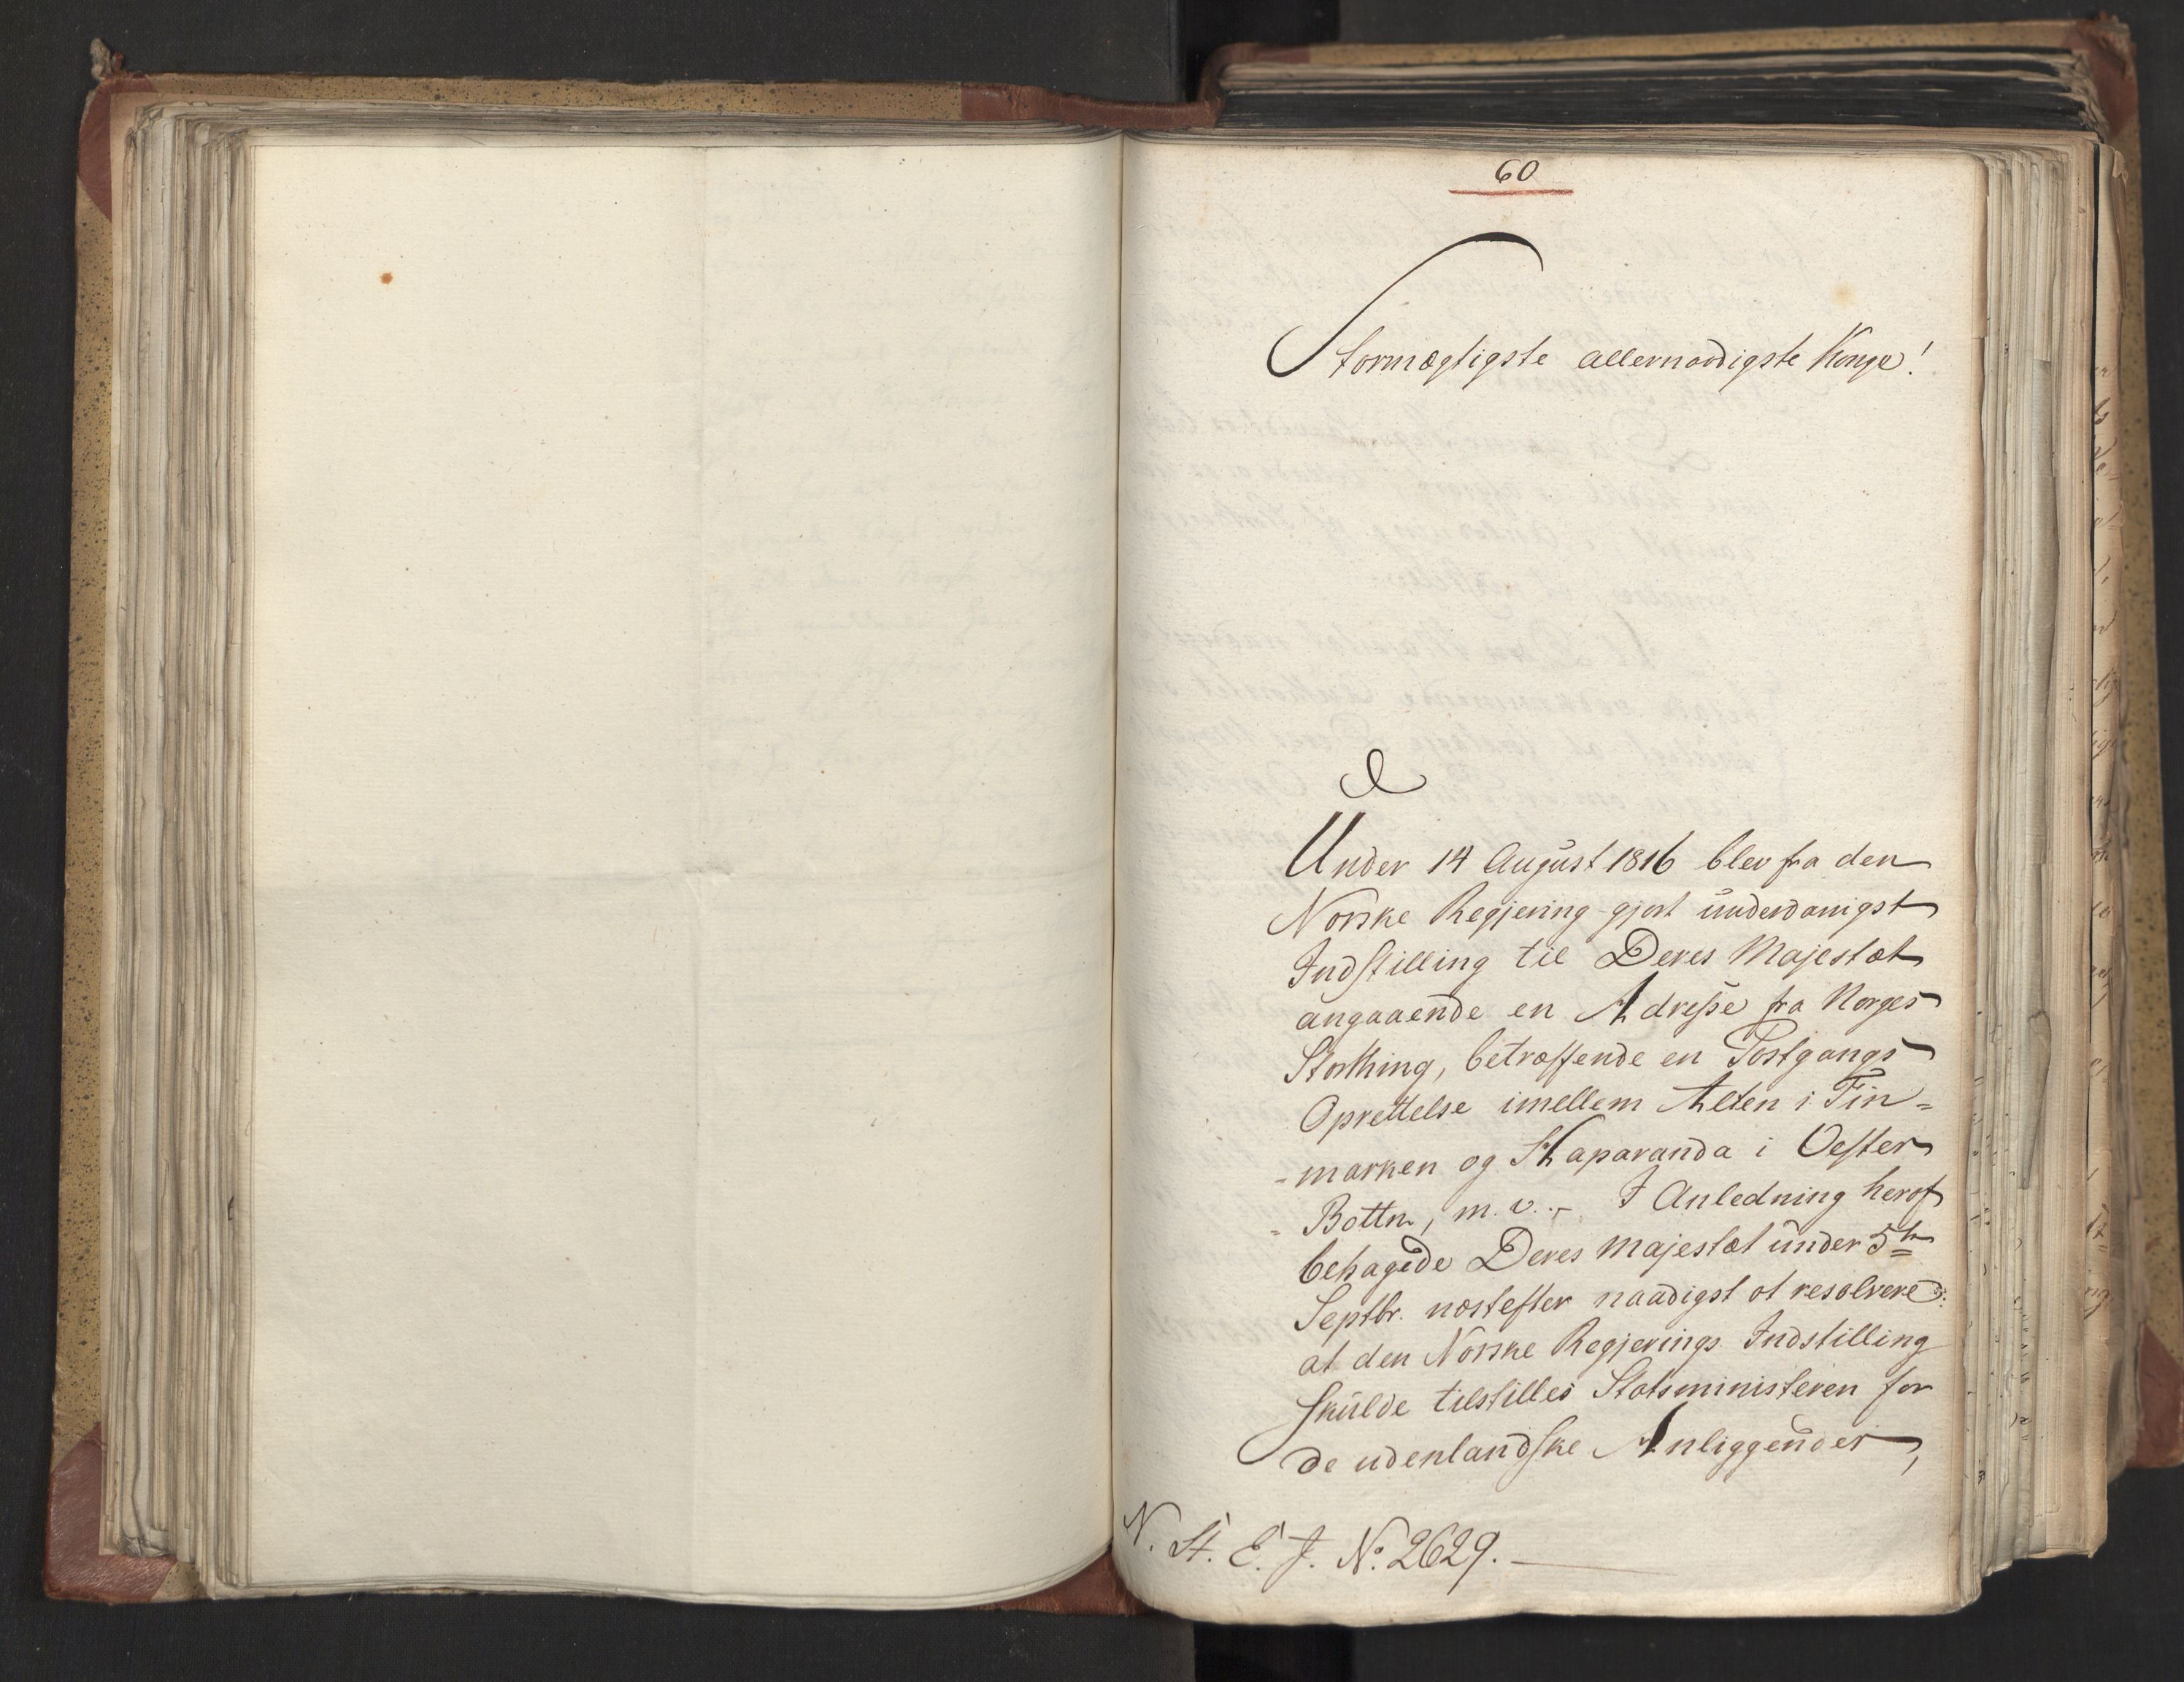 60
Stormægtigste allernaadigste Konge!
Under 14 August 1816 blev fra den
Norske Regjering gjort underdanigst
Indstilling til Deres Majestæt
angaaende en Adresse fra Norges
Storthing, betræffende en Postgangs
Oprettelse imellem Alten i Fin=
=marken og Haparanda i Oester
=Bottn, m. v. - I Anledning heraf
behagede Deres Majestæt under 5te
Septbr. næstefter naadigst at resolvere:
at den Norske Regjerings Indstilling
skulde tilstilles Statsministeren for
de udenlandske Anliggender,
N. St. E. J. No. 2629.